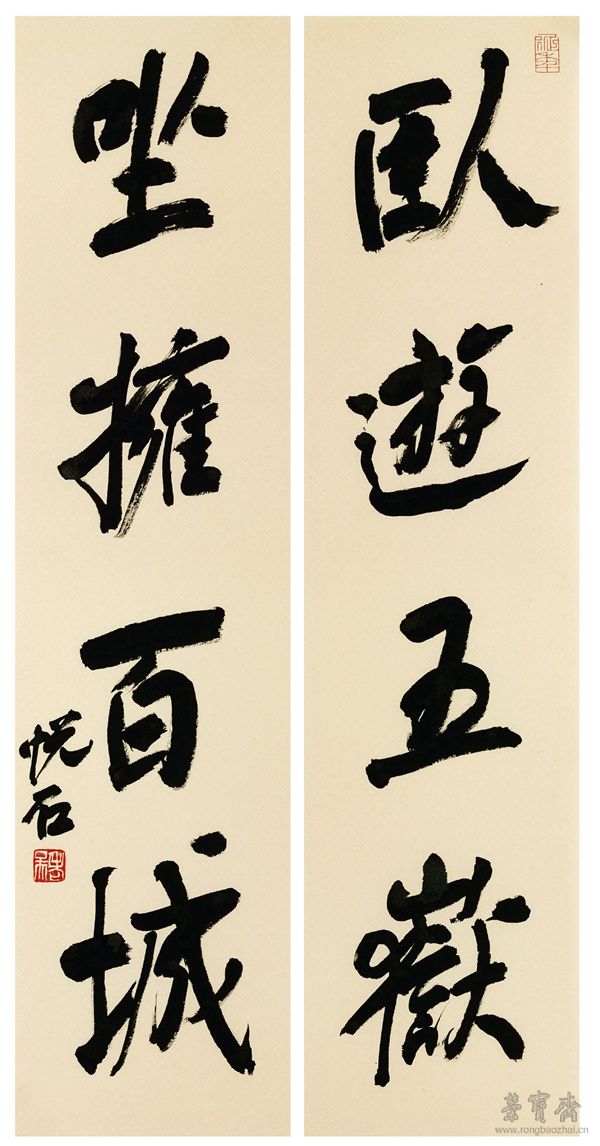 臥遊五嶽
坐擁百城
悦石
榮寶齋
www.rongbaozhai.cn